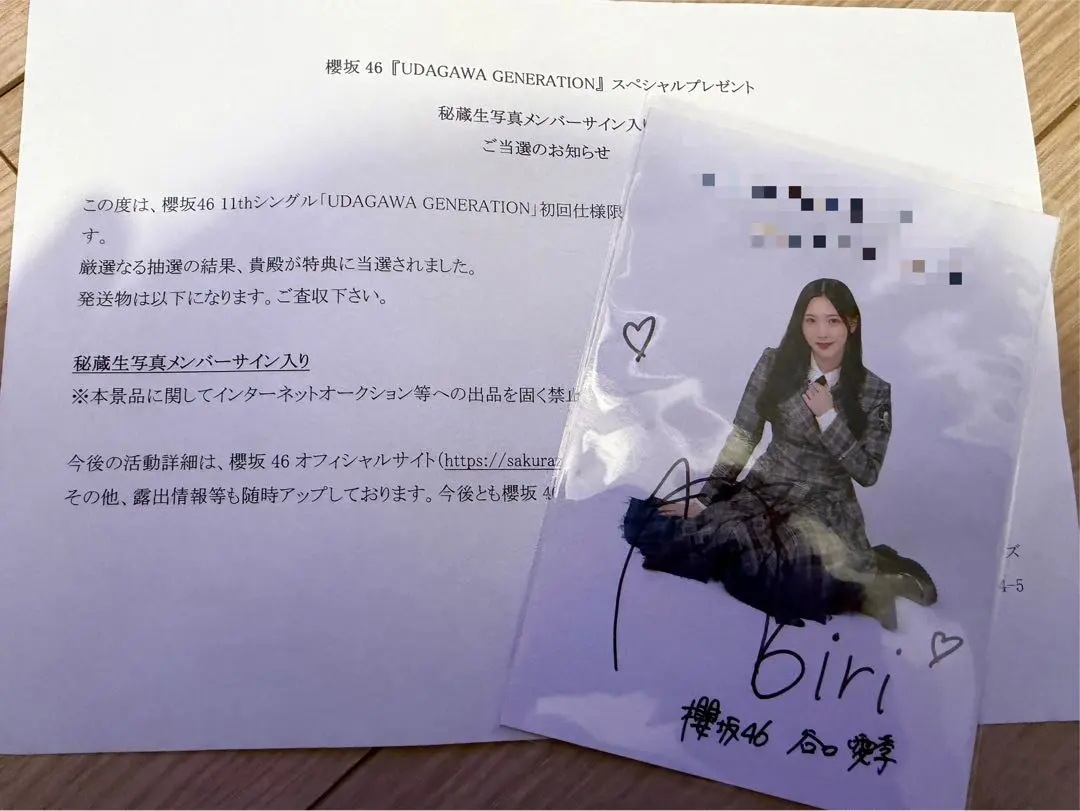 櫻坂 46『UDAGAWA GENERATION』 スペシャルプレゼント
秘蔵生写真メンバーサイン入り
ご当選のお知らせ
この度は、櫻坂46 11thシングル「UDAGAWA GENERATION」初回仕様限
す。
厳選なる抽選の結果、貴殿が特典に当選されました。
発送物は以下になります。ご査収下さい。
秘蔵生写真メンバーサイン入り
※本景品に関してインターネットオークション等への出品を固く禁止
今後の活動詳細は、櫻坂 46 オフィシャルサイト(https://sakuraz
その他、露出情報等も随時アップしております。今後とも櫻坂 46
ズ
4-5
biri
櫻坂46 谷口 愛季